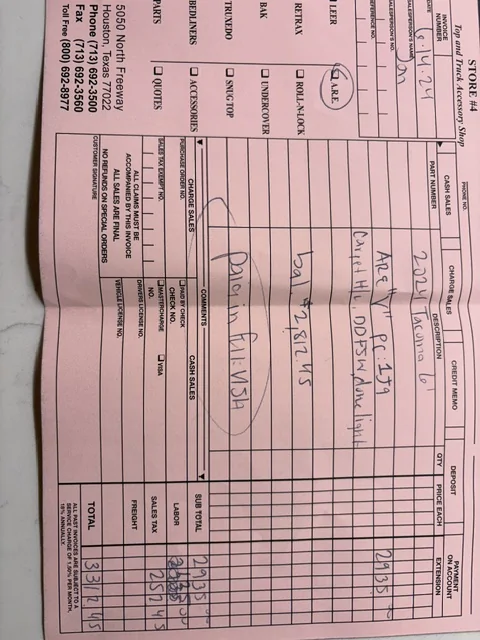 STORE #4
Top and Truck Accessory Shop
INVOICE NUMBER
DATE 6.14.24
SALESPERSON'S NAME Jon
SALESPERSON'S NO.
REFERENCE NO.
PHONE NO.
CASH SALES CHARGE SALES CREDIT MEMO DEPOSIT PAYMENT ON ACCOUNT
PART NUMBER DESCRIPTION QTY PRICE EACH EXTENSION
LEER
☐ A.R.E.
RETRAX
☐ ROLL-N-LOCK
BAK
☐ UNDERCOVER
TRUXEDO
☐ SNUGTOP
BEDLINERS
☐ ACCESSORIES
PARTS
☐ QUOTES
2024 Tacoma 6'
ARE "V" pc:1J9 2935.00
Carpet H/L, DDFSW, dome light
bal $2,812.45
paid in full: VISA
COMMENTS
CHARGE SALES
CASH SALES
PURCHASE ORDER NO.
SALES TAX EXEMPT NO.
☐ PAID BY CHECK
CHECK NO.
☐ MASTERCHARGE ☐ VISA
NO.
DRIVERS LICENSE NO.
VEHICLE LICENSE NO.
ALL CLAIMS MUST BE
ACCOMPANIED BY THIS INVOICE
ALL SALES ARE FINAL
NO REFUNDS ON SPECIAL ORDERS
CUSTOMER SIGNATURE
SUB TOTAL 2935.00
LABOR
SALES TAX 257.45
FREIGHT
TOTAL 3312.45
ALL PAST INVOICES ARE SUBJECT TO A
SERVICE CHARGE OF 1.50% PER MONTH,
18% ANNUALLY.
5050 North Freeway
Houston, Texas 77022
Phone (713) 692-3500
Fax (713) 692-3560
Toll Free (800) 692-8977